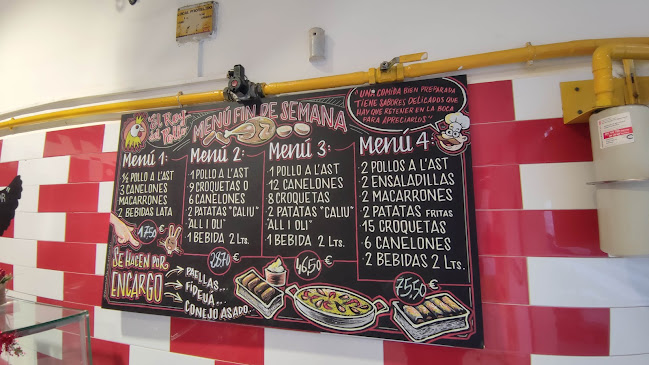 El Rey
del
Pollo
MENÚ FIN DE SEMANA
"UNA COMIDA BIEN PREPARADA
TIENE SABORES DELICADOS QUE
HAY QUE RETENER EN LA BOCA
PARA APRECIARLOS"
Menú 1:
½ POLLO A L'AST
3 CANELONES
MACARRONES
2 BEBIDAS LATA
17,50 €
Menú 2:
1 POLLO A L'AST
9 CROQUETAS O
6 CANELONES
2 PATATAS "CALIU"
"ALL I OLI"
1 BEBIDA 2 Lts.
28,70 €
Menú 3:
1 POLLO A L'AST
12 CANELONES
8 CROQUETAS
2 PATATAS "CALIU"
"ALL I OLI"
1 BEBIDA 2 Lts.
46,50 €
Menú 4:
2 POLLOS A L'AST
2 ENSALADILLAS
2 MACARRONES
2 PATATAS FRITAS
15 CROQUETAS
6 CANELONES
2 BEBIDAS 2 Lts.
75,50 €
SE HACEN POR
ENCARGO
PAELLAS...
FIDEUÁ...
CONEJO ASADO...